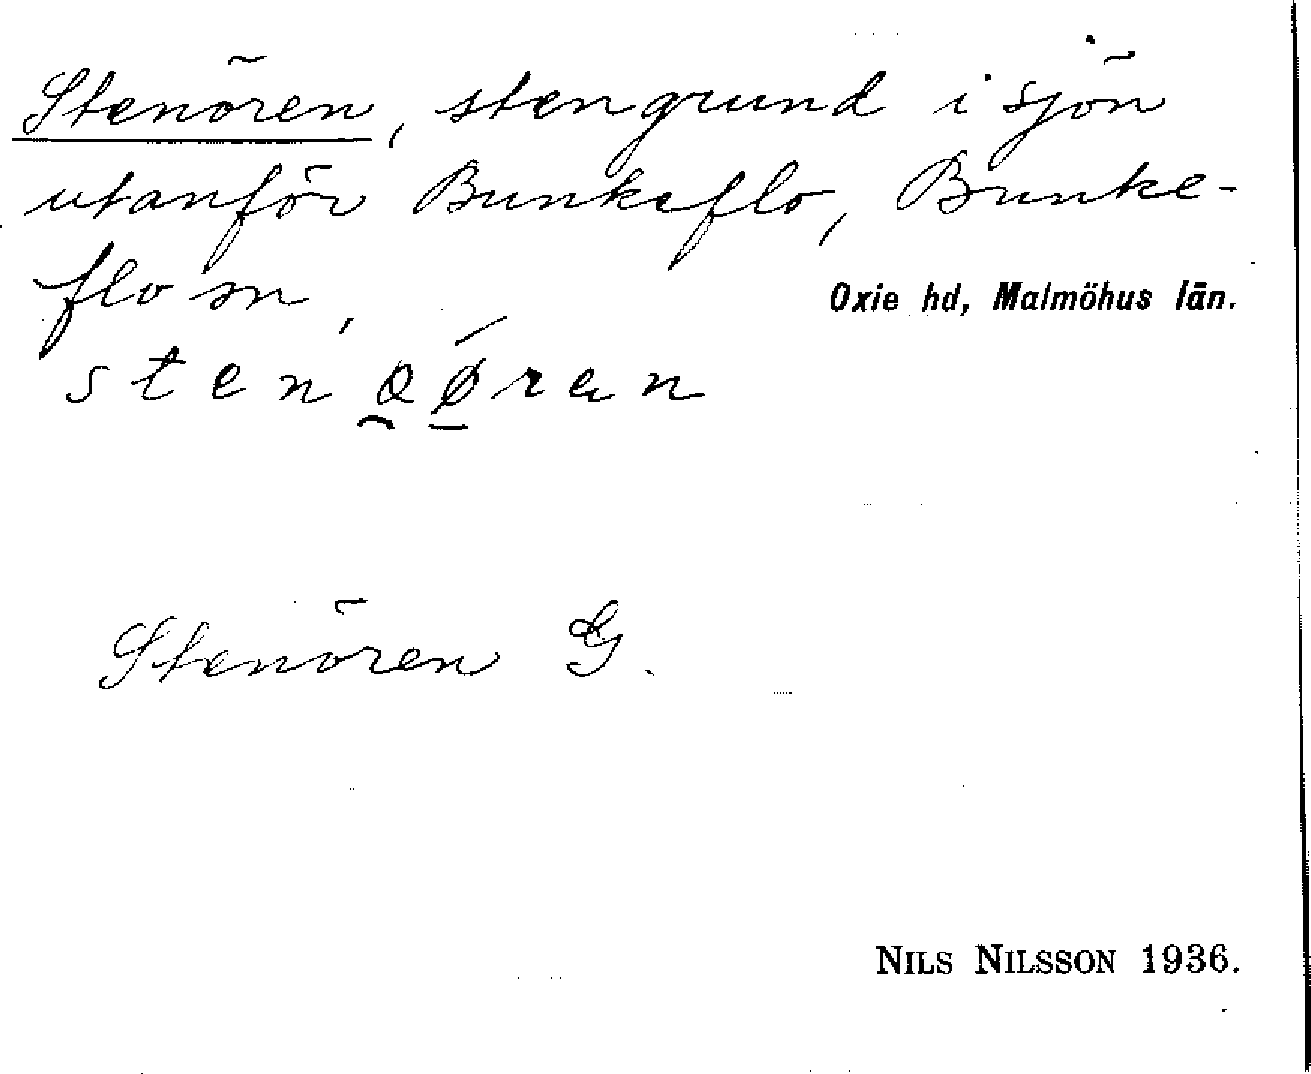 Stenören, stengrund i sjön
utanför Bunkeflo, Bunke-
flo sn,
Oxie hd, Malmöhus län.
stenøǿrən
Stenören G.
NILS NILSSON 1936.